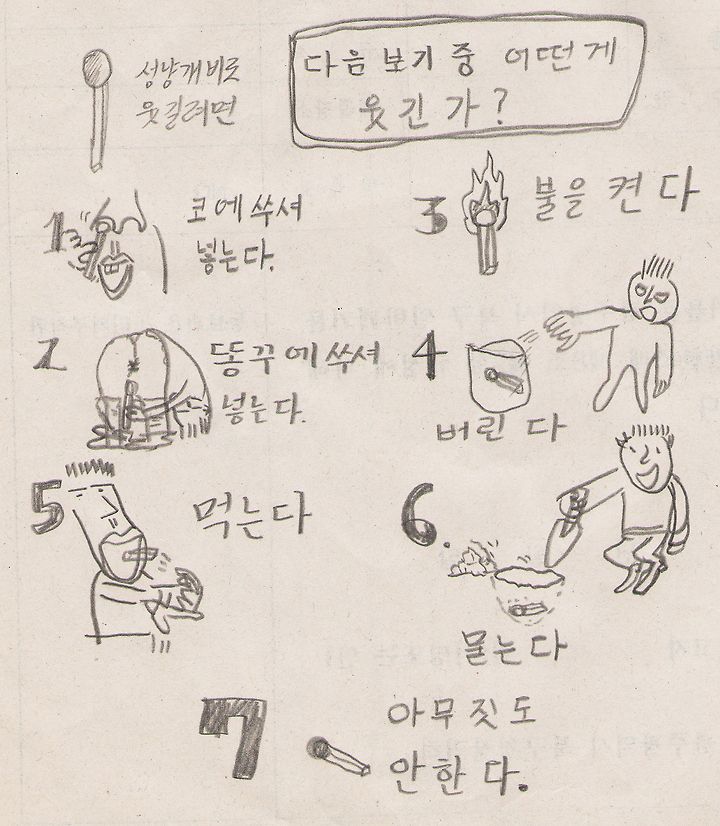 성냥개비로
웃길려면
다음 보기 중 어떤게
웃긴가?
1 코에 쑤셔
넣는다.
2 똥꾸에 쑤셔
넣는다.
3 불을 켠다
4
버린다
5 먹는다
6.
묻는다
7 아무짓도
안한다.